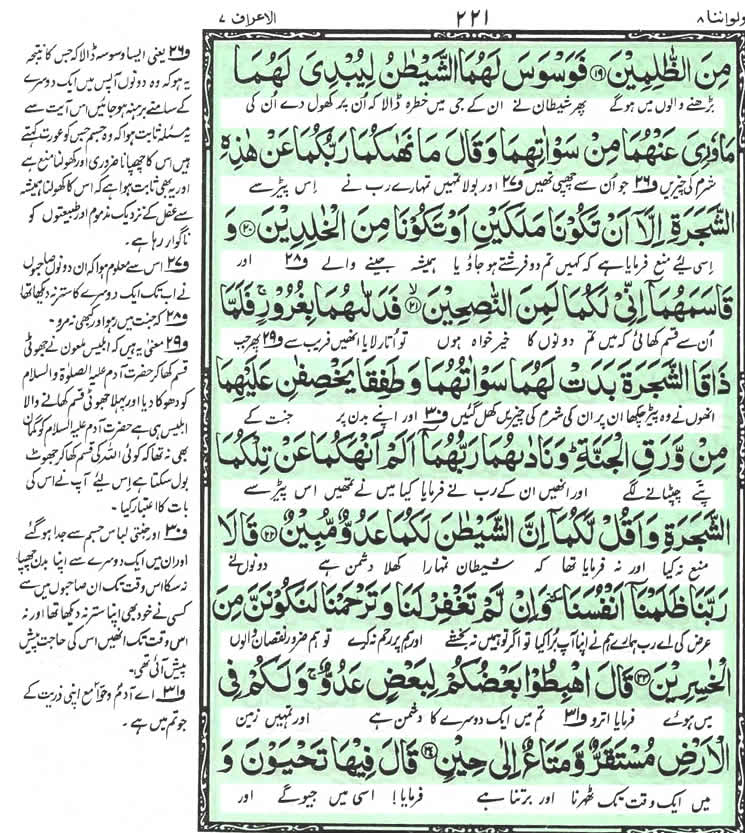 ولواننا ٨
٢٢١
الاعراف ٧
مِنَ الظّٰلِمِيْنَ ۝١٩ فَوَسْوَسَ لَهُمَا الشَّيْطٰنُ لِيُبْدِىَ لَهُمَا
بڑھنے والوں میں ہوگے پھر شیطان نے ان کے جی میں خطرہ ڈالا کہ اُن پر کھول دے اُن کی
مَاوٗرِىَ عَنْهُمَا مِنْ سَوْاٰتِهِمَا وَقَالَ مَا نَهٰىكُمَا رَبُّكُمَا عَنْ هٰذِهِ
شرم کی چیزیں و٢٦ جو اُن سے چھپی تھیں و٢٧ اور بولا تمہیں تمہارے رب نے اِس پیڑ سے
الشَّجَرَةِ اِلَّاۤ اَنْ تَكُوْنَا مَلَكَيْنِ اَوْ تَكُوْنَا مِنَ الْخٰلِدِيْنَ ۝٢٠ وَ
اِسی لیٔے منع فرمایا ہے کہ کہیں تم دو فرشتے ہو جاؤ یا ہمیشہ جینے والے و٢٨ اور
قَاسَمَهُمَاۤ اِنِّىْ لَكُمَا لَمِنَ النّٰصِحِيْنَ ۝٢١ۙ فَدَلّٰىهُمَا بِغُرُوْرٍ ۚ فَلَمَّا
اُن سے قسم کھائی کہ میں تم دونوں کا خیر خواہ ہوں تو اُتار لایا انھیں فریب سے و٢٩ پھر جب
ذَاقَا الشَّجَرَةَ بَدَتْ لَهُمَا سَوْاٰتُهُمَا وَطَفِقَا يَخْصِفٰنِ عَلَيْهِمَا
انھوں نے وہ پیڑ چکھا ان پر ان کی شرم کی چیزیں کھل گئیں و٣٠ اور اپنے بدن پر جنت کے
مِنْ وَّرَقِ الْجَنَّةِ ؕ وَنَادٰىهُمَا رَبُّهُمَاۤ اَلَمْ اَنْهَكُمَا عَنْ تِلْكُمَا
پتے چپٹانے لگے اور انھیں ان کے رب نے فرمایا کیا میں نے تمھیں اس پیڑ سے
الشَّجَرَةِ وَاَقُلْ لَّكُمَاۤ اِنَّ الشَّيْطٰنَ لَكُمَا عَدُوٌّ مُّبِيْنٌ ۝٢٢ قَالَا
منع نہ کیا اور نہ فرمایا تھا کہ شیطان تمہارا کھلا دشمن ہے دونوں نے
رَبَّنَا ظَلَمْنَاۤ اَنْفُسَنَا ٚ وَاِنْ لَّمْ تَغْفِرْ لَنَا وَتَرْحَمْنَا لَنَكُوْنَنَّ مِنَ
عرض کی اے رب ہمارے ہم نے اپنا آپ بُرا کیا تو اگر تو ہمیں نہ بخشے اور ہم پر رحم نہ کرے تو ہم ضرور نقصان والوں
الْخٰسِرِيْنَ ۝٢٣ قَالَ اهْبِطُوْا بَعْضُكُمْ لِبَعْضٍ عَدُوٌّ ۚ وَلَكُمْ فِى
میں ہوئے فرمایا اترو و٣١ تم میں ایک دوسرے کا دشمن ہے اور تمہیں زمین
الْاَرْضِ مُسْتَقَرٌّ وَّمَتَاعٌ اِلٰى حِيْنٍ ۝٢٤ قَالَ فِيْهَا تَحْيَوْنَ وَ
میں ایک وقت تک ٹھہرنا اور برتنا ہے فرمایا! اسی میں جیوگے اور
و٢٦ یعنی ایسا وسوسہ ڈالا کہ جس کا نتیجہ
یہ ہو کہ وہ دونوں آپس میں ایک دوسرے
کے سامنے برہنہ ہو جائیں اس آیت سے
یہ مسئلہ ثابت ہوا کہ وہ جسم جس کو عورت کہتے
ہیں اس کا چھپانا ضروری اور کھولنا منع ہے
اور یہ بھی ثابت ہوا ہے کہ اس کا کھولنا ہمیشہ
سے عقل کے نزدیک مذموم اور طبیعتوں کو
ناگوار رہا ہے۔
و٢٧ اس سے معلوم ہوا کہ ان دونوں صاحبوں
نے اب تک ایک دوسرے کا ستر نہ دیکھا تھا
و٢٨ کہ جنت میں رہو اور کبھی نہ مرو۔
و٢٩ معنی یہ ہیں کہ ابلیس ملعون نے جھوٹی
قسم کھا کر حضرت آدم علیہ الصلوٰة والسلام
کو دھوکا دیا اور پہلا جھوٹی قسم کھانے والا
ابلیس ہی ہے حضرت آدم علیہ السلام کو گمان
بھی نہ تھا کہ کوئی اللہ کی قسم کھا کر جھوٹ
بول سکتا ہے اِس لیٔے آپ نے اس کی
بات کا اعتبار کیا۔
و٣٠ اور جنتی لباس جسم سے جدا ہو گئے
اور ان میں ایک دوسرے سے اپنا بدن چھپا
نہ سکا اس وقت تک ان صاحبوں میں سے
کسی نے خود بھی اپنا ستر نہ دیکھا تھا اور نہ
اس وقت تک انھیں اس کی حاجت پیش
پیش آئی تھی۔
و٣١ اے آدم و حوا مع اپنی ذریت کے
جو تم میں ہے۔